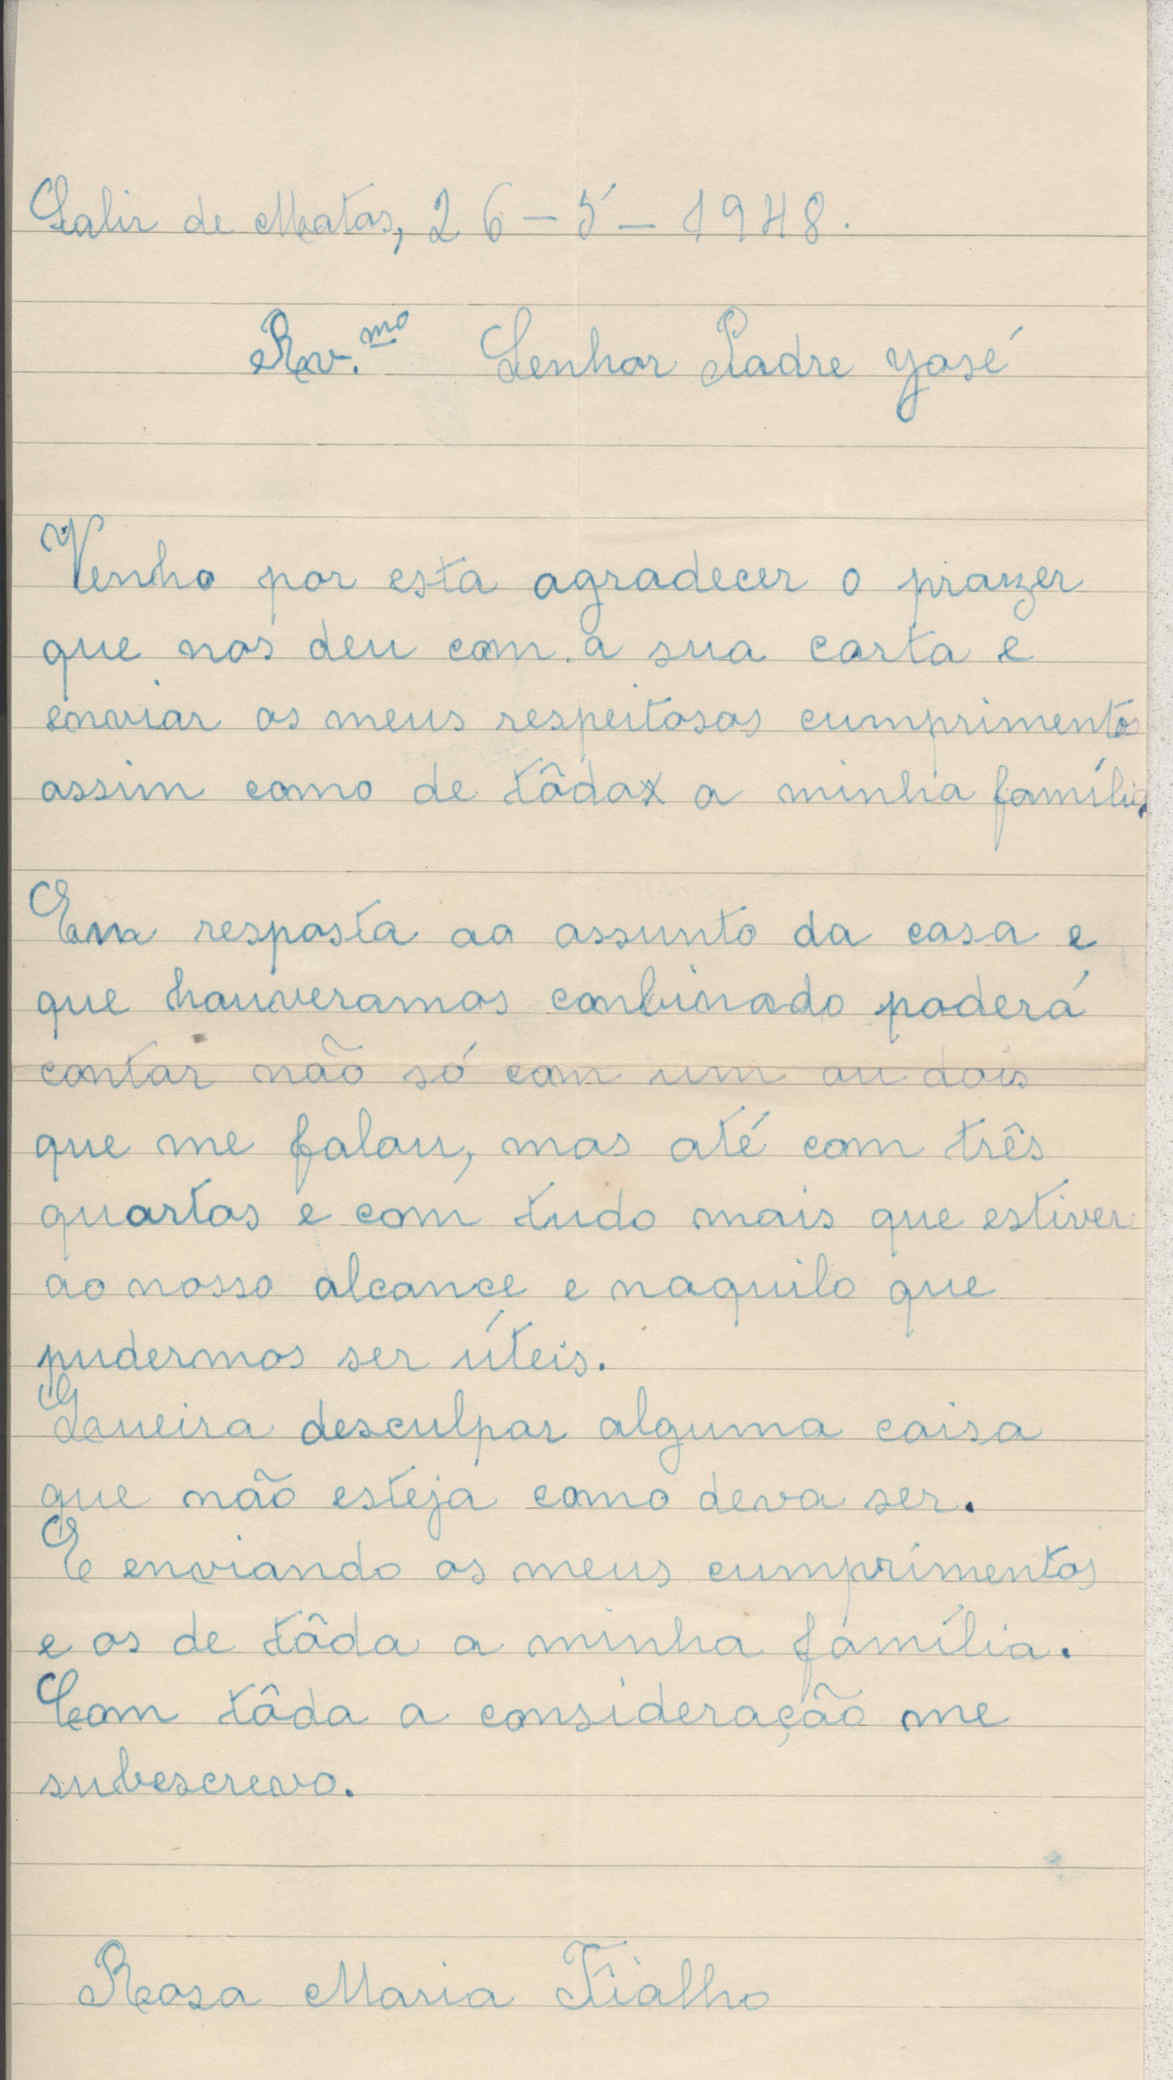 Salir de Matos, 26-5-1948.
Rev.mo Senhor Padre José
Venho por esta agradecer o prazer
que nos deu com a sua carta e
enviar os meus respeitosos cumprimentos
assim como de tôda a minha família.
Em resposta ao assunto da casa e
que houveramos conbinado poderá
contar não só com um ou dois
que me falou, mas até com três
quartos e com tudo mais que estiver
ao nosso alcance e naquilo que
pudermos ser úteis.
Queira desculpar alguma coisa
que não esteja como deva ser.
E enviando os meus cumprimentos
e os de tôda a minha família.
Com tôda a consideração me
subescrevo.
Rosa Maria Fialho